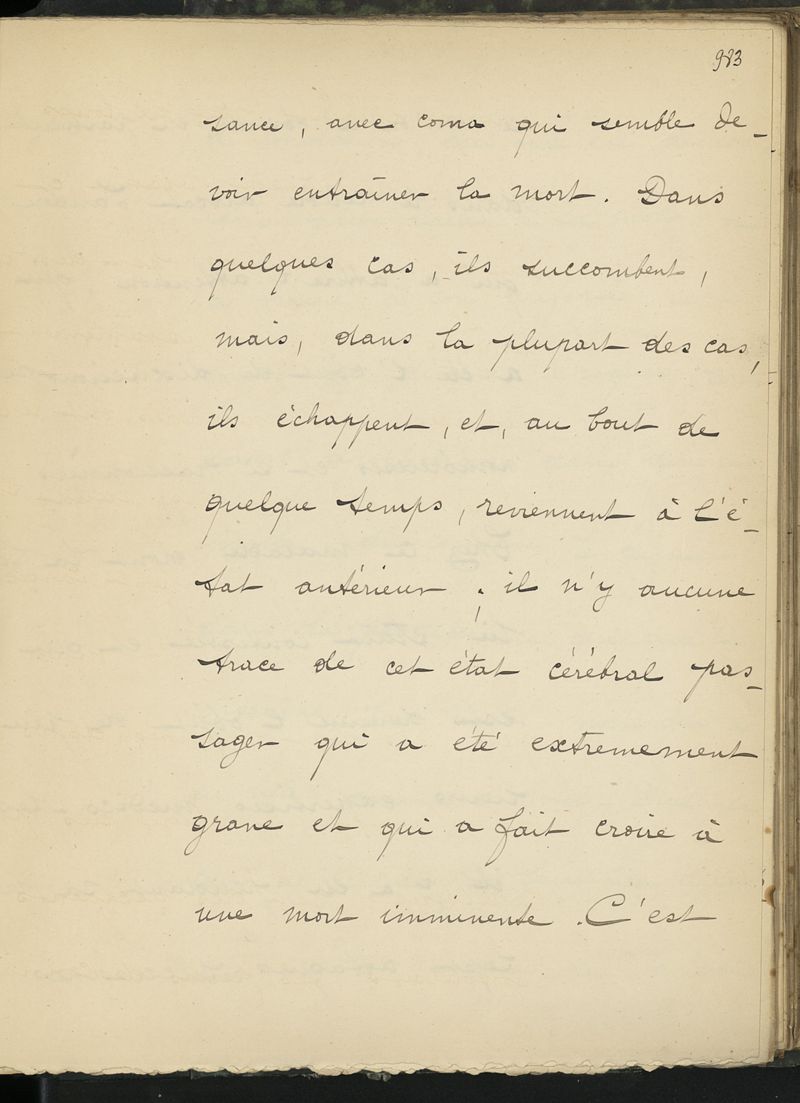 983
sance, avec coma qui semble de-
voir entraîner la mort. Dans
quelques cas, ils succombent,
mais, dans la plupart des cas,
ils échappent, et, au bout de
quelque temps, reviennent à l'é-
tat antérieur ; il n'y aucune
trace de cet état cérébral pas-
sager qui a été extremement
grave et qui a fait croire à
une mort imminente. C'est